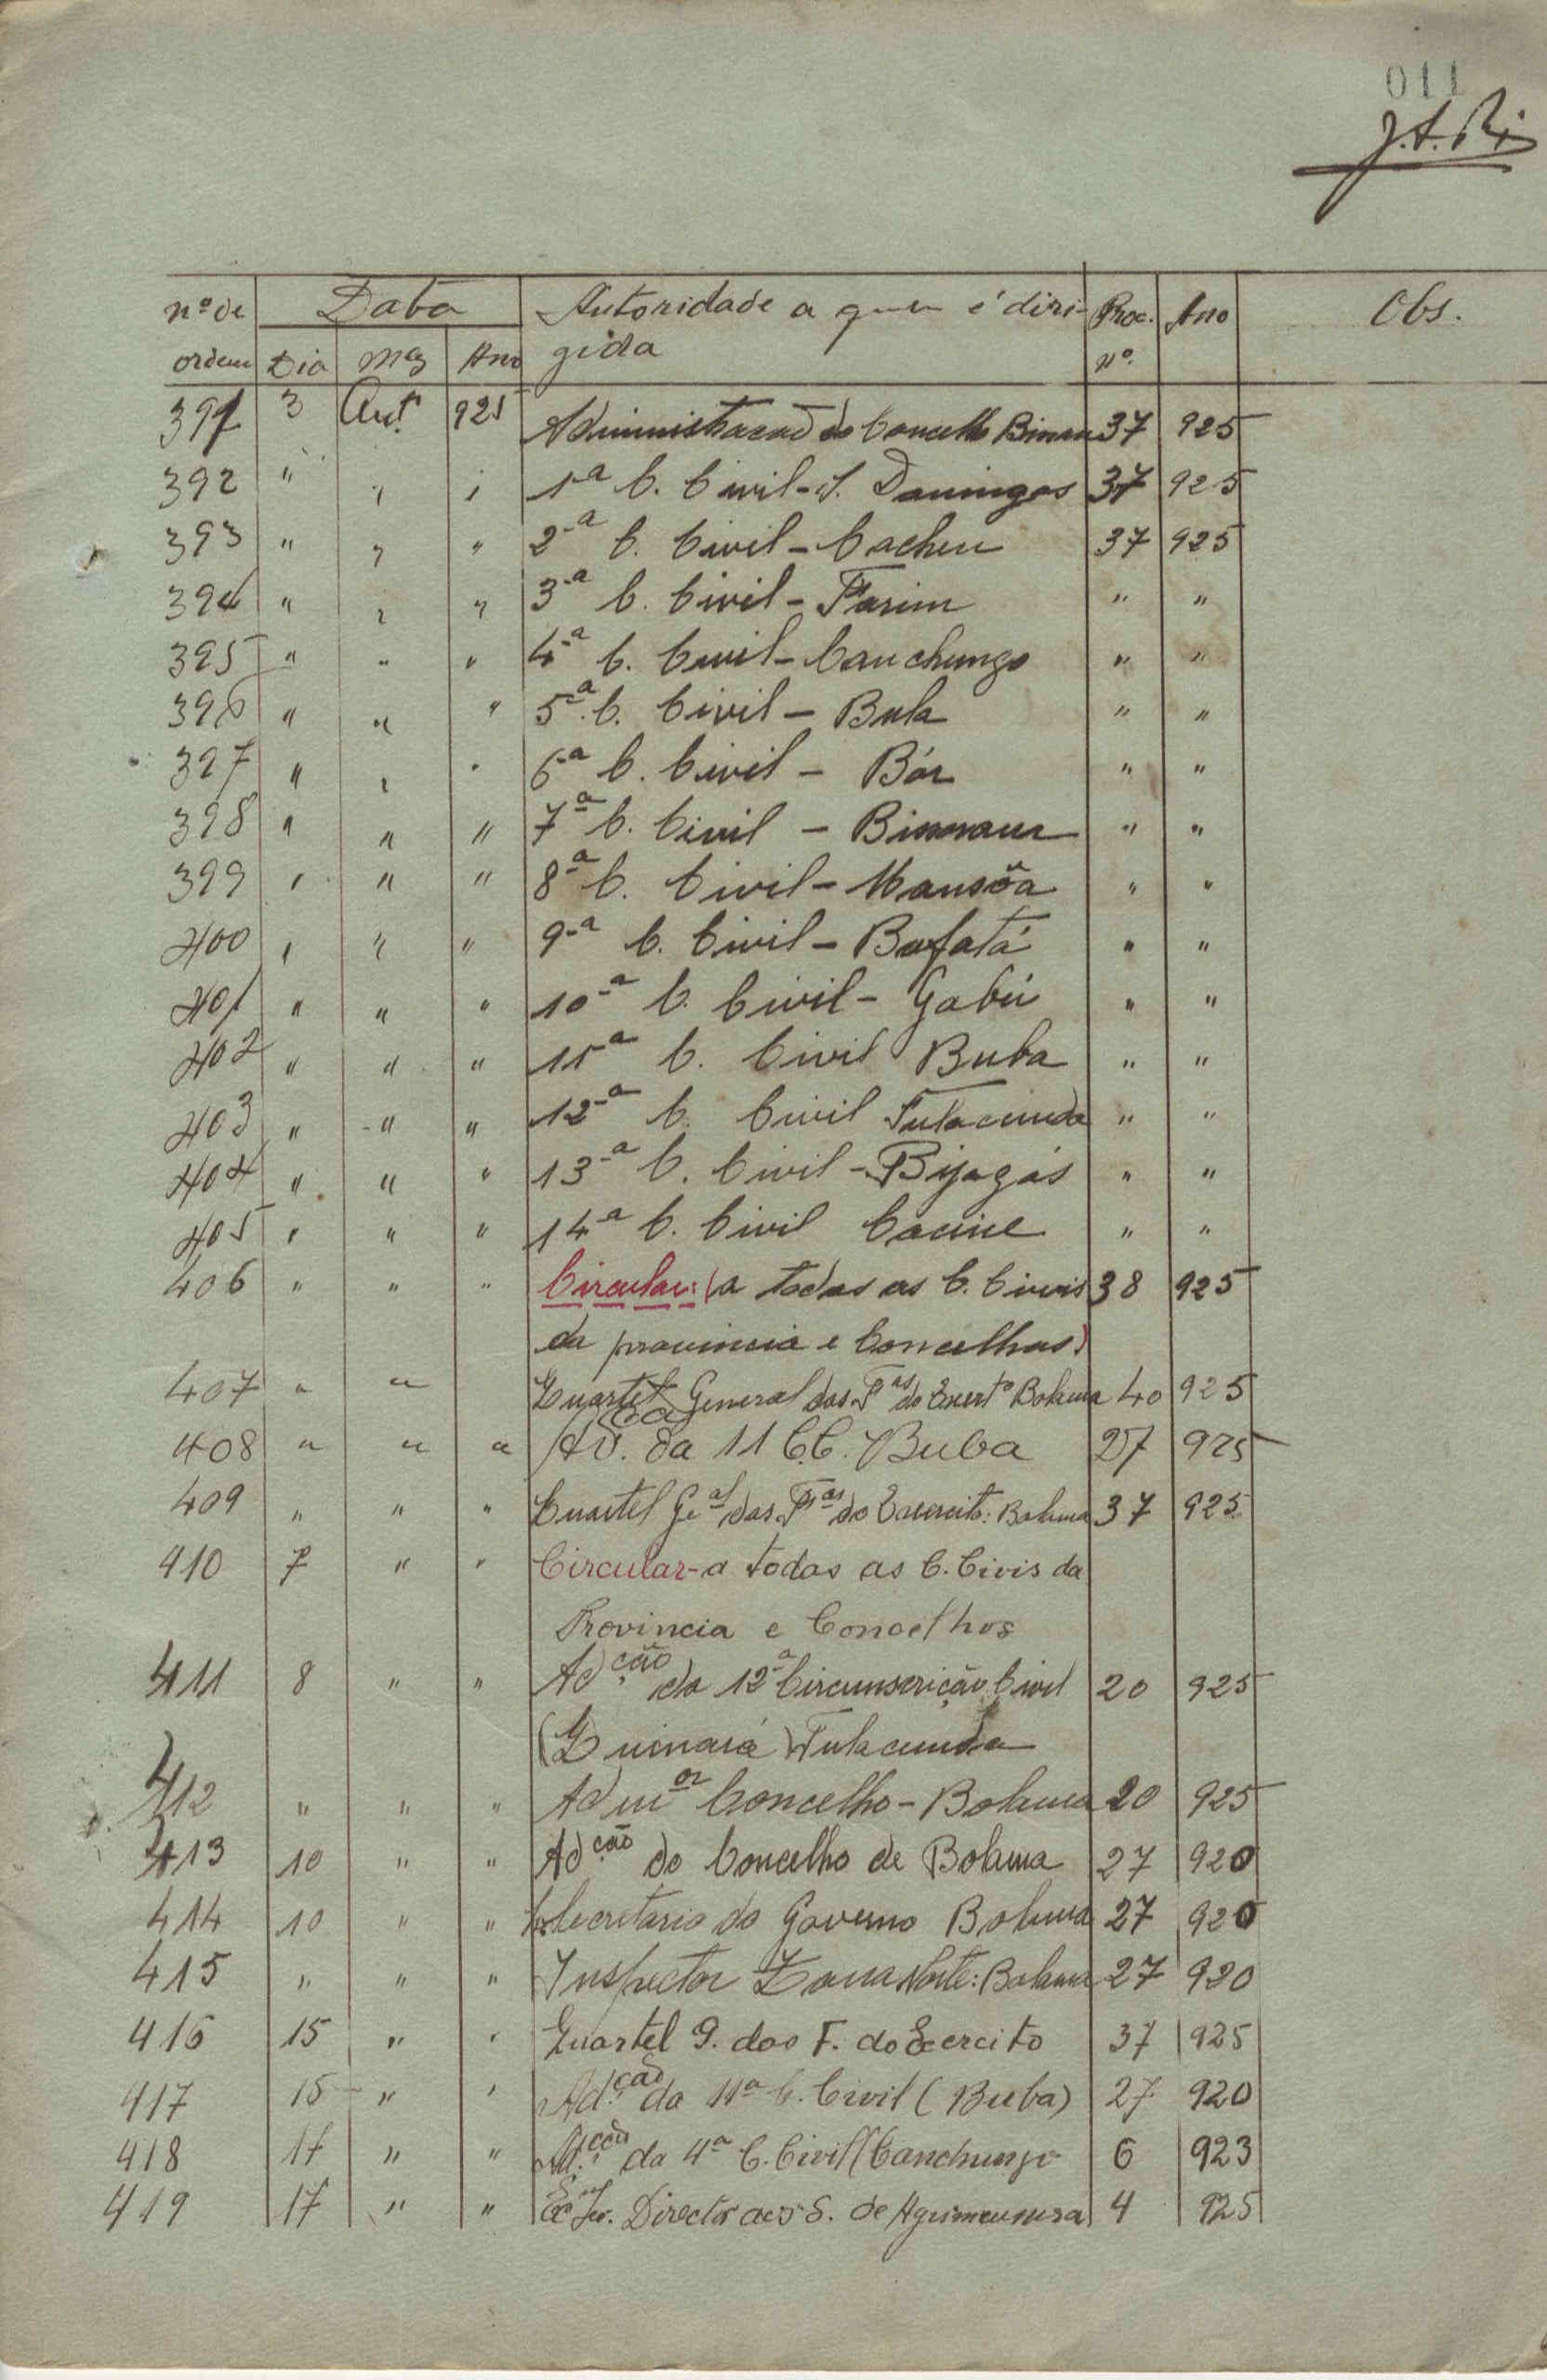 011
J.A.Ri
nº de Data Autoridade a quem é diri- Proc. Ano Obs.
ordem Dia Mez Ano gida nº.
391 3 Out. 925 Administracaõ do Concelho Bissau 37 925
392 " " " 1ª C. Civil - S. Domingos 37 925
393 " " " 2ª C. Civil - Cacheu 37 925
394 " " " 3ª C. Civil - Farim " "
395 " " " 4ª C. Civil - Canchungo " "
396 " " " 5ª C. Civil - Bula " "
397 " " " 6ª C. Civil - Bór " "
398 " " " 7ª C. Civil - Bissau " "
399 " " " 8ª C. Civil - Mansôa " "
400 " " " 9ª C. Civil - Bafatá " "
401 " " " 10ª C. Civil - Gabú " "
402 " " " 11ª C. Civil Buba " "
403 " " " 12ª C. Civil Fulacunda " "
404 " " " 13ª C. Civil - Bijagós " "
405 " " " 14ª C. Civil Cacine " "
406 " " " Circular: (a todas as C. Civis 38 925
da provincia e Concelhos)
407 " " Quartel General das Fªs do Exertº Bolama 40 925
408 " " " Adção da 11 C.C. Buba 27 925
409 " " " Cuartel Geal das Fas do Exercito: Bolama 37 925
410 7 " " Circular - a todas as C. Civis da
Provincia e Concelhos
411 8 " " Adção da 12ª Circunscrição Civil 20 925
(Quinará) Fulacunda
412 " " " Admor Concelho - Bolama 20 925
413 10 " " Adção do Concelho de Bolama 27 920
414 10 " " Secretario do Governo Bolama 27 920
415 " " " Inspector Zona Norte: Bolama 27 920
416 15 " " Quartel G. das F. do Exercito 37 925
417 15 " " Ad.ção da 11ª C. Civil (Buba) 27 920
418 17 " " Ad.ção da 4ª C. Civil (Canchungo 6 923
419 17 " " Director dos S. de Agrimensura 4 925